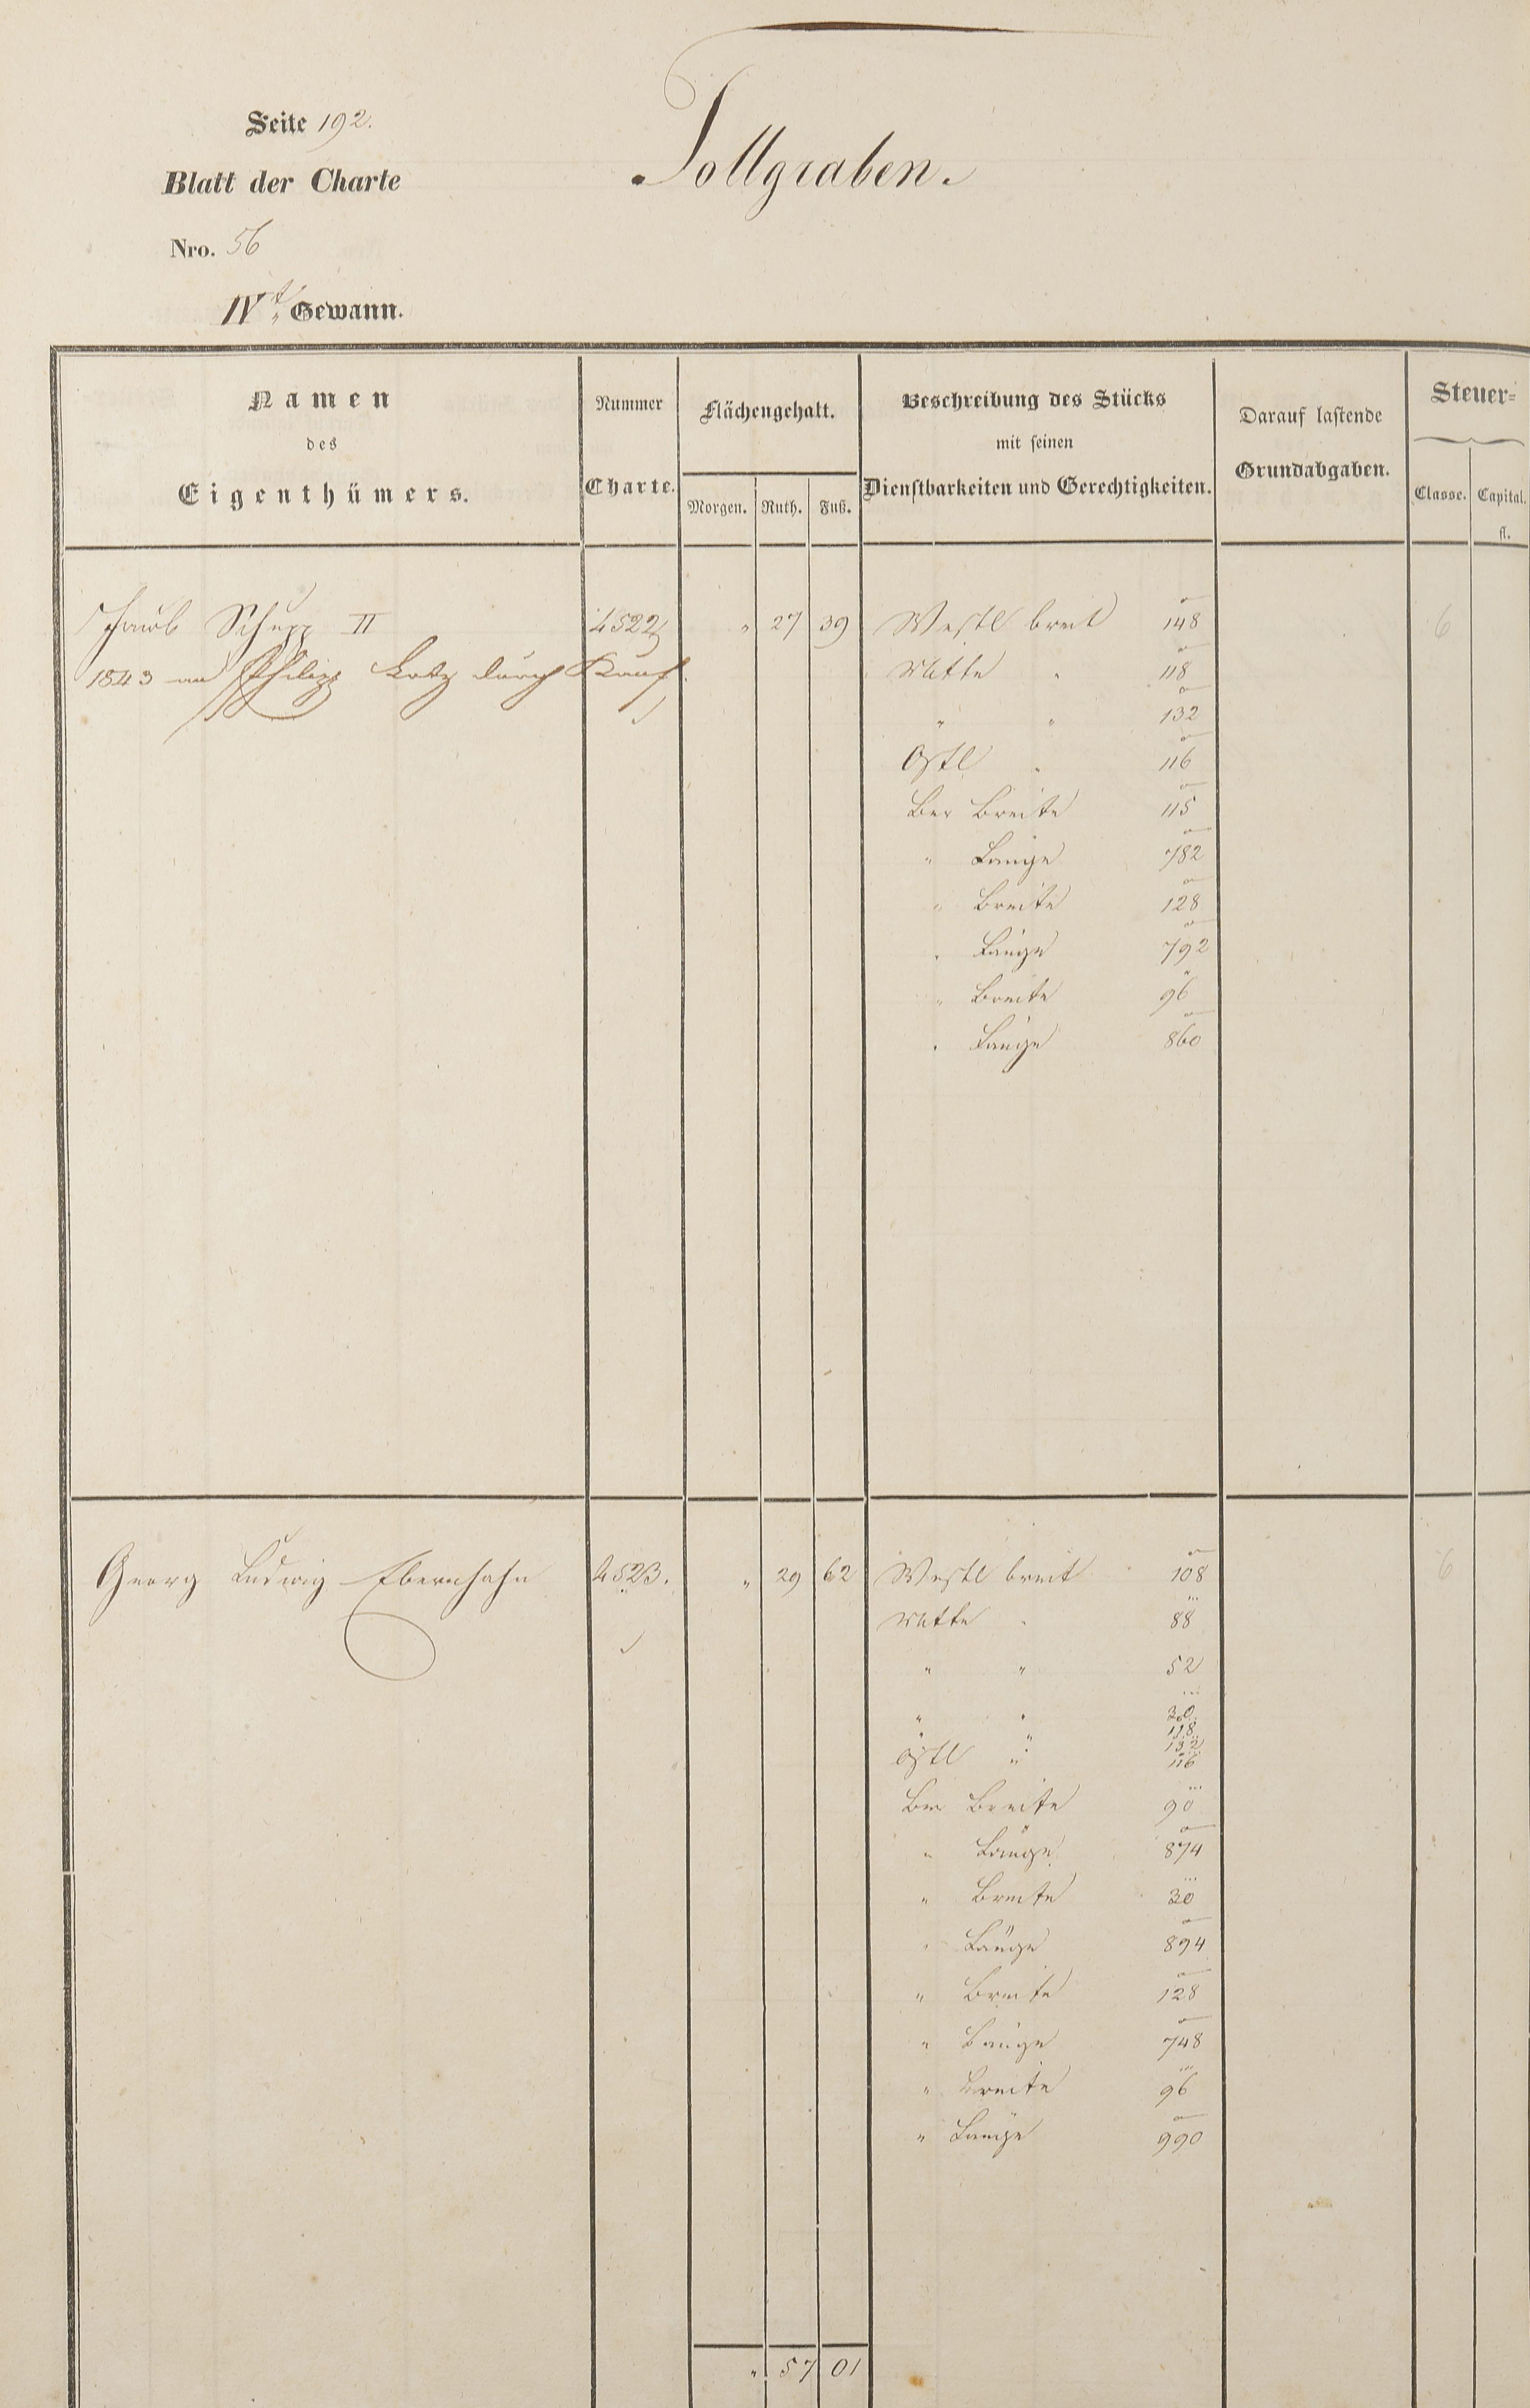 Seite 192.
Tollgraben.
Blatt der Charte
Nro. 56
IVt. Gewann.
Namen
des
Eigenthümers.
Nummer
Charte.
Flächengehalt.
Morgen. Ruth. Fuß.
Beschreibung des Stücks
mit seinen
Dienstbarkeiten und Gerechtigkeiten.
Darauf lastende
Grundabgaben.
Steuer-
Classe. Capital.
fl.
Jacob Schupp II 4522 " 27 39 Westl breit 148 6
1843 an Philipp Lotz durch Kauf. Mitte " 118
" " 132
Östl " 116
Ber Breite 115
" Länge 782
" Breite 128
" Länge 792
" Breite 96
" Länge 860
Georg Ludwig Ebernhahn 4523. " 29 62 Westl breit 108 6
Mitte " 88
" " 52
" " 30
" " 118
" 132
Östl " 116
Ber Breite 90
" Länge 874
" Breite 30
" Länge 894
" Breite 128
" Länge 748
" Breite 96
" Länge 990
" 57 01